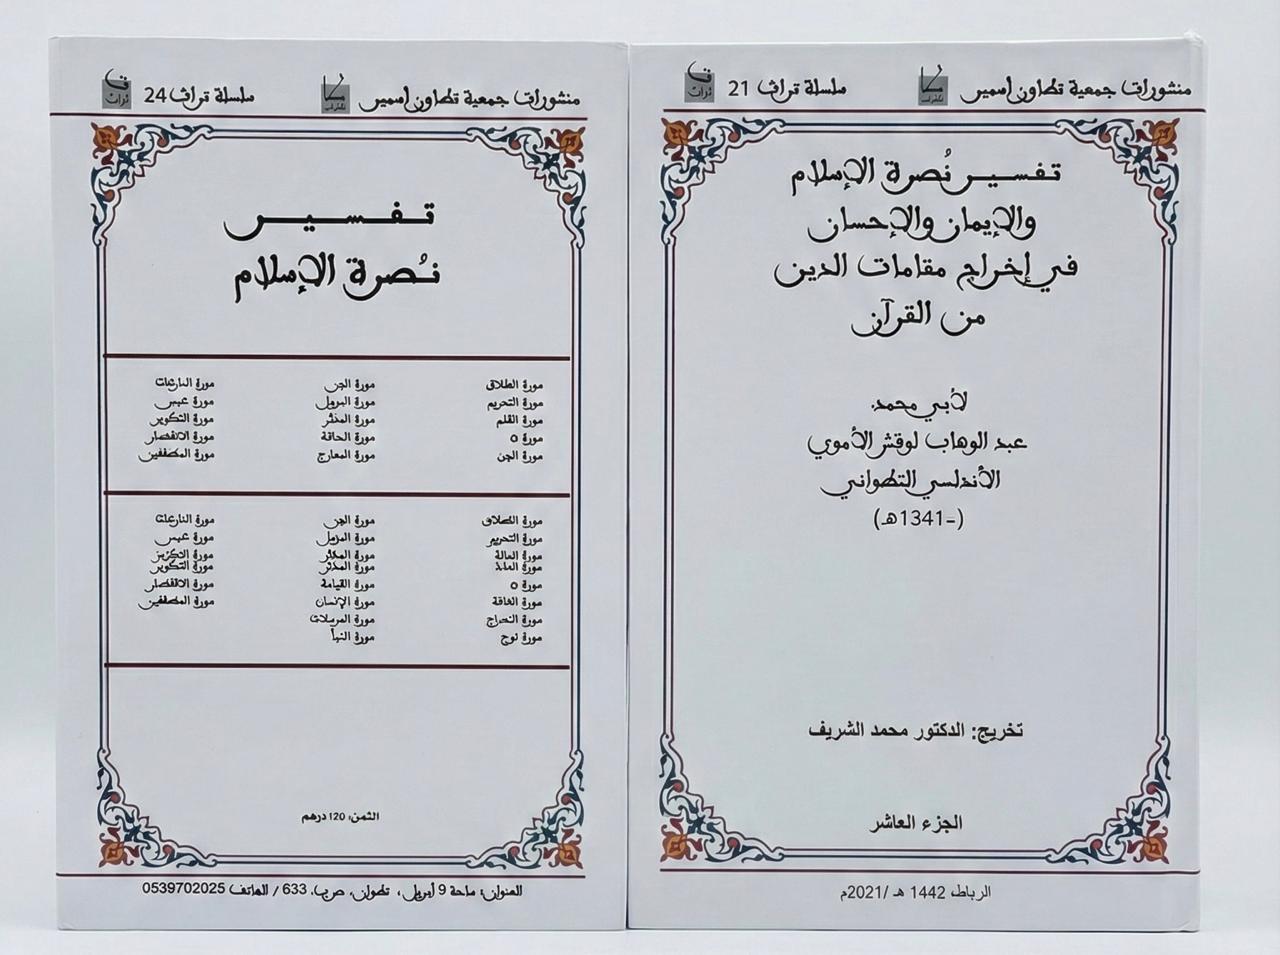 منشورات جمعية تطاون اسمير
سلسلة تراث 21
تراث
تفسير نُصرة الإسلام
والإيمان والإحسان
في إخراج مقامات الدين
من القرآن
لأبي محمد
عبد الوهاب لوقش الأموي
الأندلسي التطواني
(-1341هـ)
تخريج: الدكتور محمد الشريف
الجزء العاشر
الرباط، 1442 هـ /2021م
منشورات جمعية تطاون اسمير
سلسلة تراث 24
تراث
تـفـسـير
نُصرة الإسلام
سورة الطلاق
سورة التحريم
سورة القلم
سورة ن
سورة الجن
سورة الجن
سورة المدثر
سورة الحاقة
سورة المعارج
سورة النازعات
سورة عبس
سورة التكوير
سورة الانفطار
سورة المطففين
سورة التحريم
سورة ن
سورة نوح
سورة الجن
سورة المزمل
سورة المدثر
سورة المدثر
سورة القيامة
سورة الإنسان
سورة المرسلات
سورة النبأ
سورة النازعات
سورة عبس
سورة التكوير
سورة الانفطار
سورة المطففين
الثمن: 120 درهم
العنوان: ساحة 9 أبريل، تطوان، ص.ب. 633 / الهاتف 0539702025